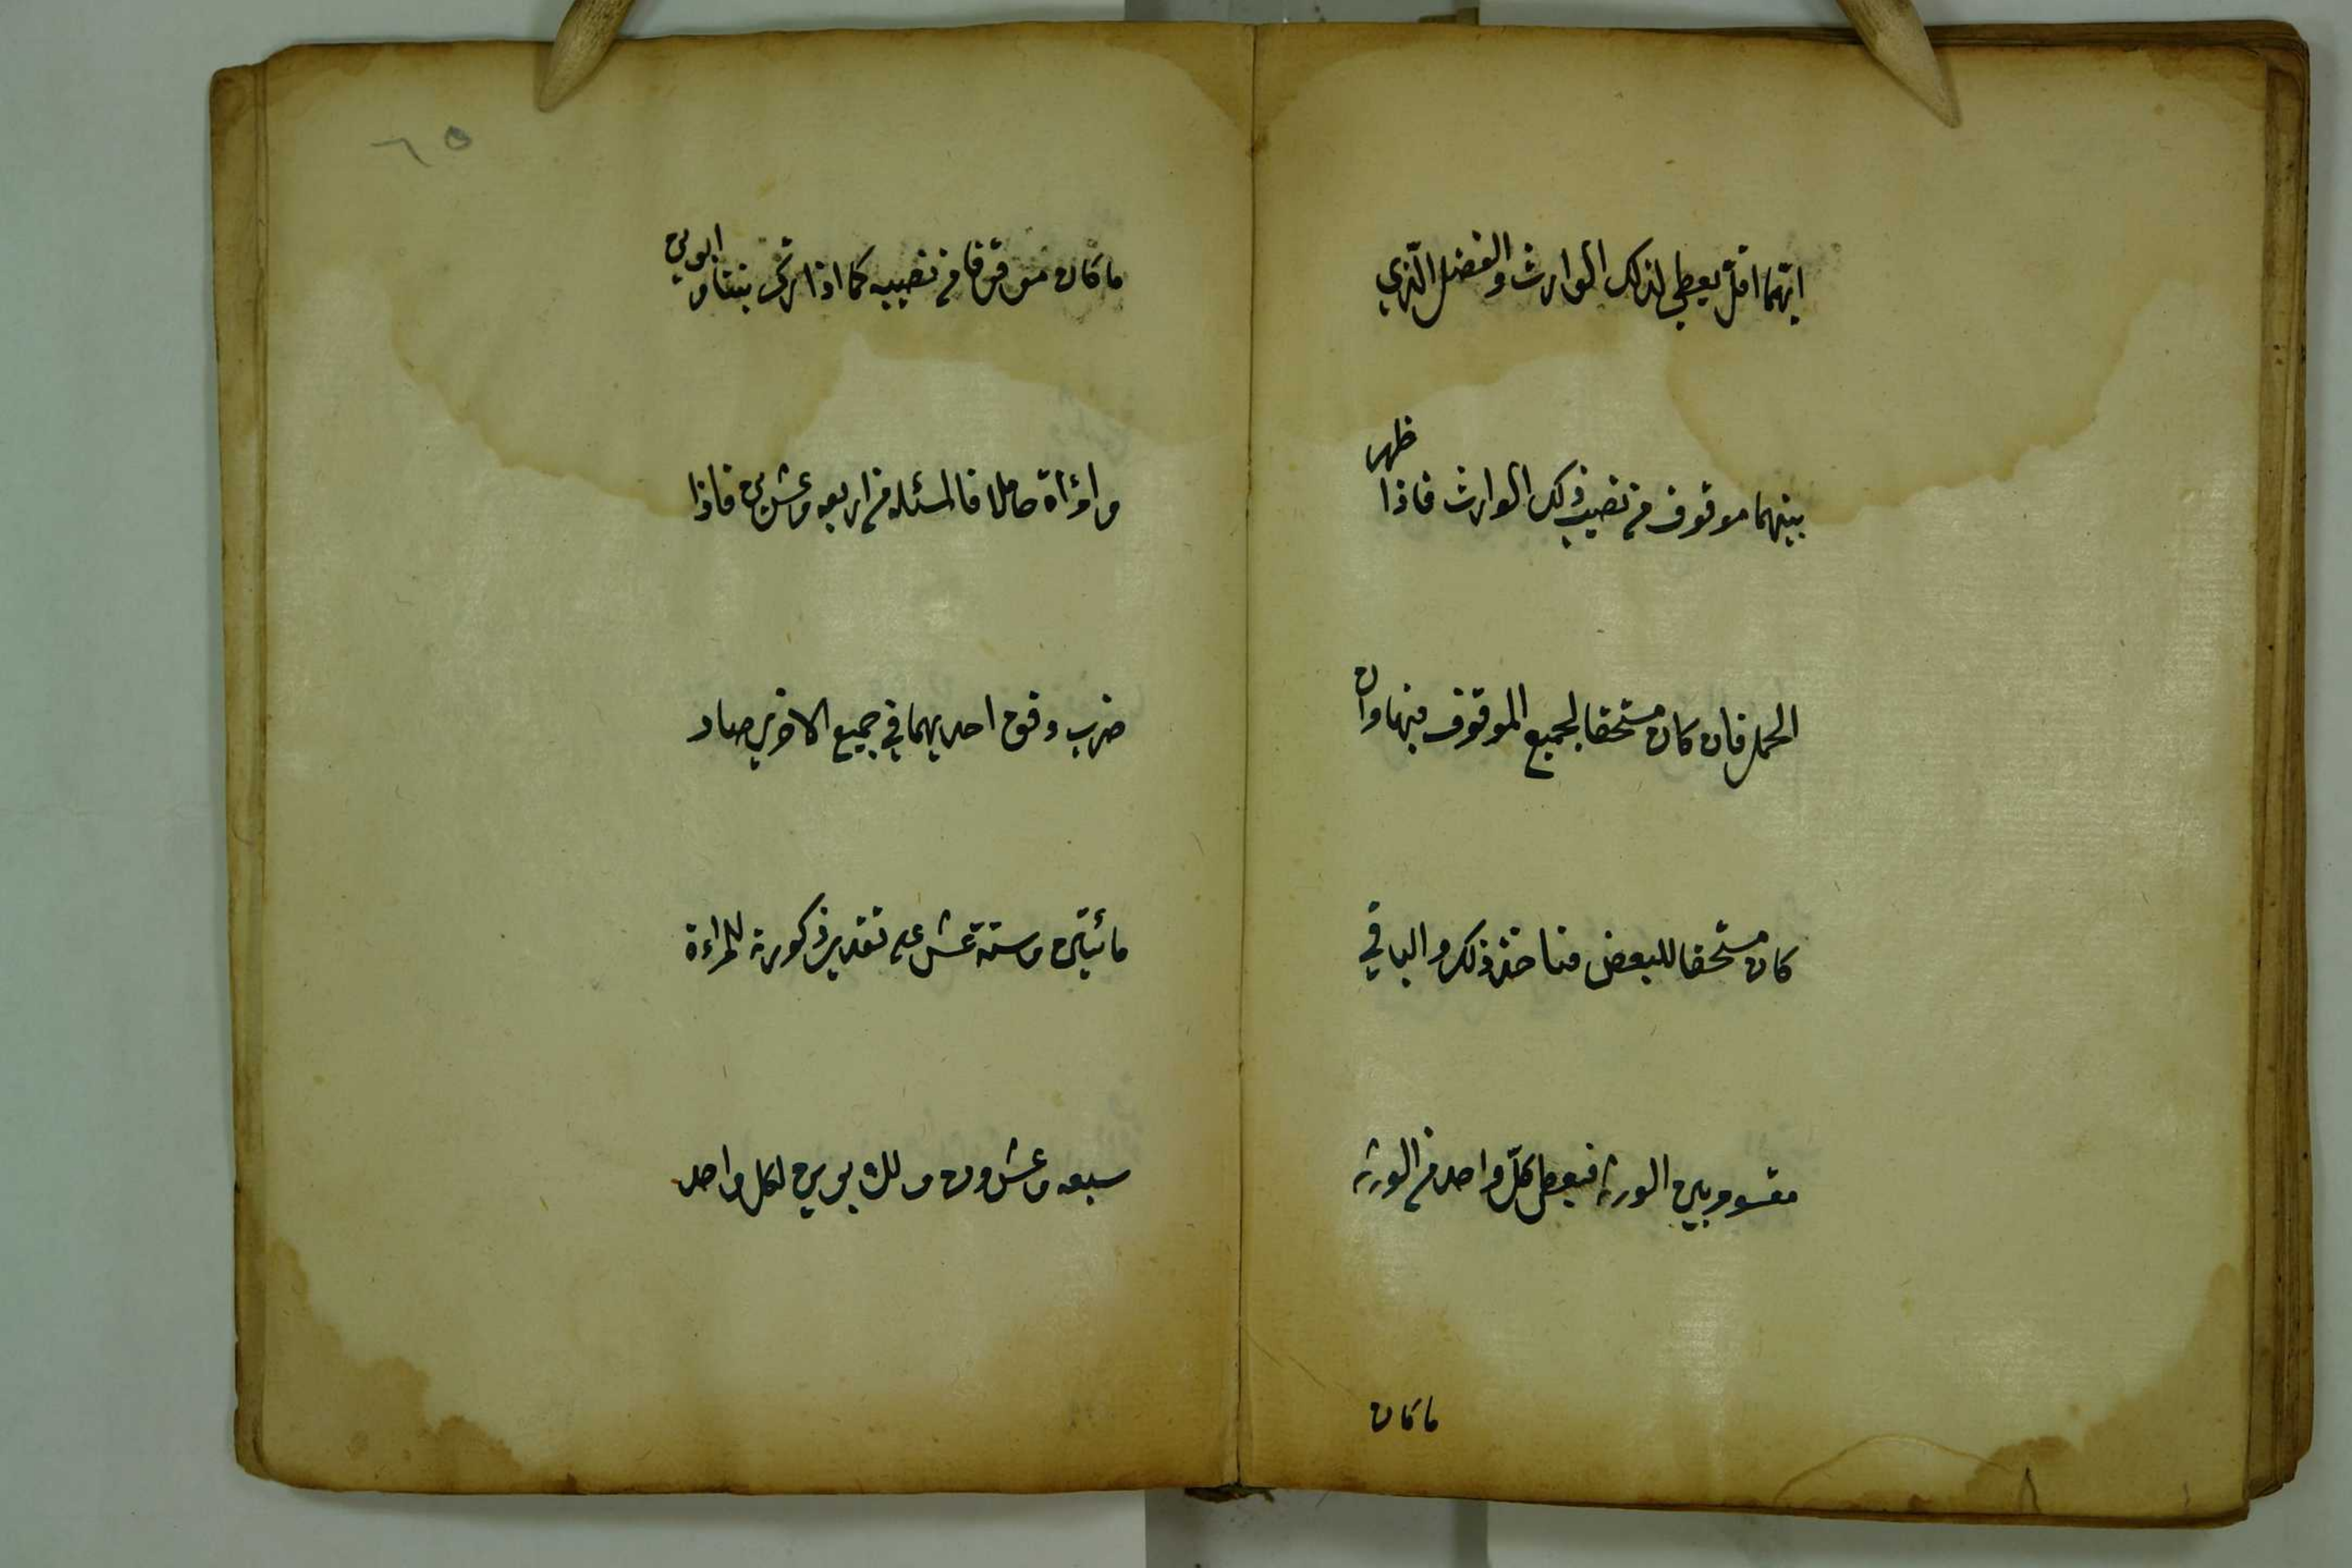 ايّهما اقلّ يعطي لذلك الوارث والفضل الّذي
بينهما موقوف من نصيب ذلك الوارث فاذا ظهر
الحمل فان كان مستحقا لجميع الموقوف فبها وان
كان مستحقا للبعض فياخذ ذلك والباقي
مقسوم بين الورثة فيعطى كلّ واحد من الورثة
ماكان
٦٥
ماكان موقوفا من نصيبه كما اذا ترك بنتا وابوين
وامرأة حاملا فالمسئله من اربعه وعشرين فاذا
ضرب وفق احديهما في جميع الاخرى صار
مائتين وستة عشر على تقدير ذكورته للمراءة
سبعه وعشرون وللابوين لكل واحد